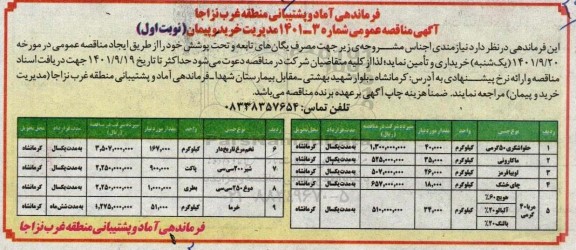 فرماندهی آماد و پشتیبانی منطقه غرب نزاجا
آگهی مناقصه عمومی شماره ۳-۱۴۰۱ مدیریت خرید و پیمان (نوبت اول)
این فرماندهی در نظر دارد نیازمندی اجناس مشروحه‌ی زیر جهت مصرف یگان‌های تابعه و تحت پوشش خود را از طریق ایجاد مناقصه عمومی در مورخه
۱۴۰۱/۹/۲۰ (یک‌شنبه) خریداری و تأمین نماید؛ لذا از کلیه متقاضیان شرکت در مناقصه دعوت می‌شود حداکثر تا تاریخ ۱۴۰۱/۹/۱۹ جهت دریافت اسناد
مناقصه و ارائه نرخ پیشنهادی به آدرس: کرمانشاه-بلوار شهید بهشتی-مقابل بیمارستان شهدا-فرماندهی آماد و پشتیبانی منطقه غرب نزاجا (مدیریت
خرید و پیمان) مراجعه نمایند. ضمناً هزینه چاپ آگهی بر عهده برنده مناقصه می‌باشد.
تلفن تماس: ۰۸۳۳۸۳۵۷۶۵۴
ردیف نوع جنس واحد مقدار مورد نیاز سپرده شرکت در مناقصه (ریال) مدت قرارداد محل تحویل
۱ حلواشکری ۵۰ گرمی کیلوگرم ۲۰,۰۰۰ ۱,۳۰۰,۰۰۰,۰۰۰ به مدت یکسال کرمانشاه
۲ ماکارونی کیلوگرم ۳۵,۰۰۰ ۵۴۵,۰۰۰,۰۰۰ به مدت یکسال کرمانشاه
۳ لوبیا قرمز کیلوگرم ۲۶,۰۰۰ ۵۰۷,۰۰۰,۰۰۰ به مدت یکسال کرمانشاه
۴ چای خشک کیلوگرم ۱۸,۰۰۰ ۶۵۷,۰۰۰,۰۰۰ به مدت یکسال کرمانشاه
۵ مربا ۲۰ گرمی هویج ۶۰٪ آلبالو ۲۰٪ بالنگ ۲۰٪ کیلوگرم ۳۴,۰۰۰ ۵۱۰,۰۰۰,۰۰۰ به مدت یکسال کرمانشاه
ردیف نوع جنس واحد مقدار مورد نیاز سپرده شرکت در مناقصه (ریال) مدت قرارداد محل تحویل
۶ تخم‌مرغ تاریخ‌دار کیلوگرم ۱۶۷,۰۰۰ ۳,۵۰۷,۰۰۰,۰۰۰ به مدت یکسال کرمانشاه
۷ شیر ۲۰۰ سی‌سی پاکت ۹۰۰,۰۰۰ ۲,۲۵۰,۰۰۰,۰۰۰ به مدت یکسال کرمانشاه
۸ دوغ ۲۵۰ سی‌سی بطری ۱,۰۰۰,۰۰۰ ۲,۲۵۰,۰۰۰,۰۰۰ به مدت یکسال کرمانشاه
۹ خرما کیلوگرم ۵۱,۰۰۰ ۱,۲۷۵,۰۰۰,۰۰۰ به مدت شش ماه کرمانشاه
فرماندهی آماد و پشتیبانی منطقه غرب نزاجا